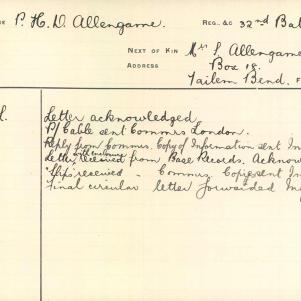 P. H. D. Allengame. REG. &C 32nd Bat
NEXT OF KIN Mrs L Allengame
ADDRESS Box 18.
Tailem Bend.
Letter acknowledged
P/ Cable sent Commrs London.
Reply from Commrs. Copy of Information sent In
Letter with enclosure received from Base Records. Acknow
received - Commrs Copy sent In
Final circular letter forwarded